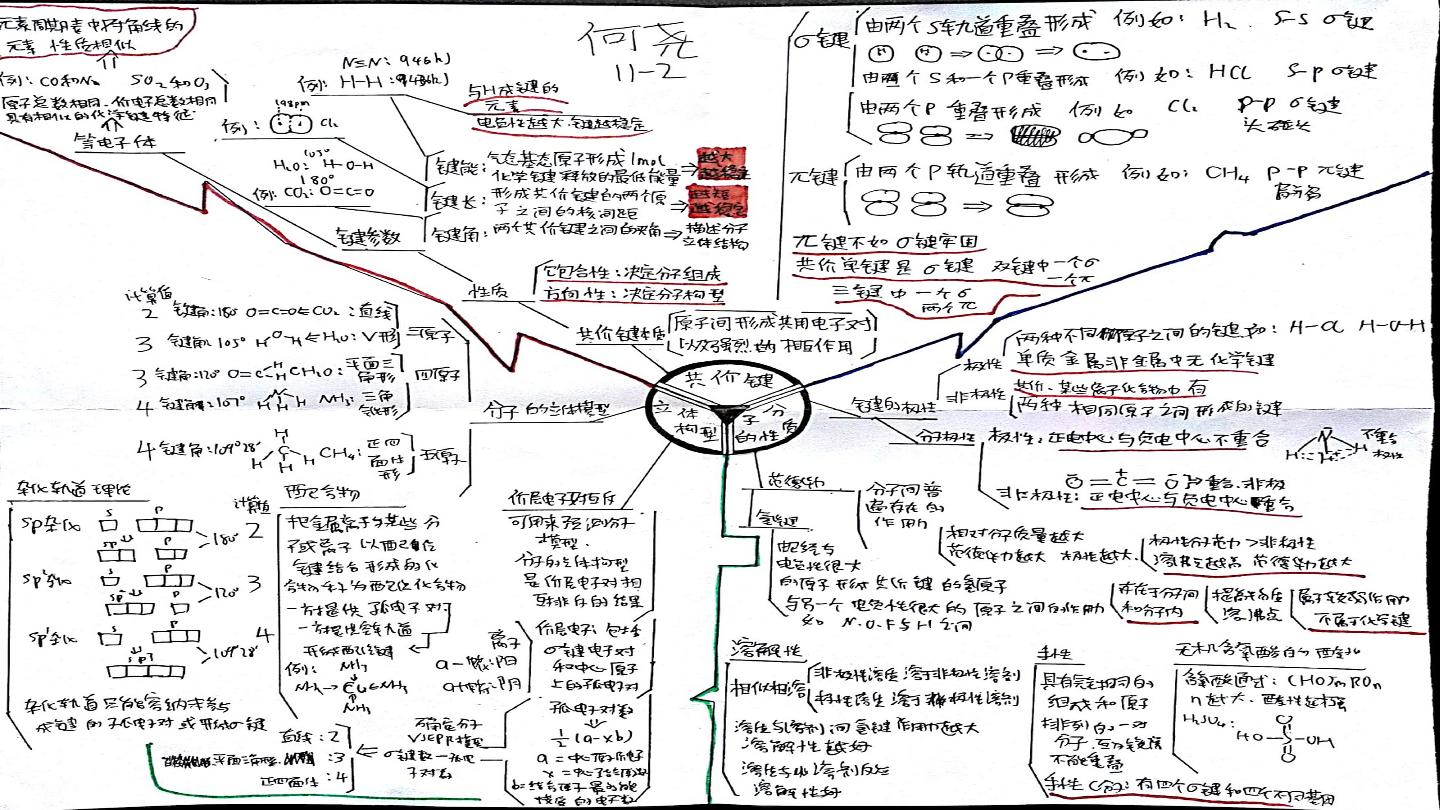 元素周期表中对角线的
元素 性质相似
例：CO和N₂ SO₂和O₃
原子总数相同、价电子总数相同
具有相似的化学键特征
等电子体
何尧
11-2
N≡N：946kJ
例：H-H：436kJ
198pm
例： Cl₂
105°
H₂O： H-O-H
180°
例：CO₂：O=C=O
与H成键的
元素
电负性越大 键越稳定
键能：气态基态原子形成1mol
化学键释放的最低能量 ⇒ 越大
越稳定
键长：形成共价键的两个原
子之间的核间距 ⇒ 越短
越稳定
键角：两个共价键之间的夹角 ⇒ 描述分子
立体结构
键参数
性质
饱合性：决定分子组成
方向性：决定分子构型
共价键本质
原子间形成共用电子对
以及强烈的相互作用
σ键
由两个S轨道重叠形成 例如：H₂ S-S σ键
由两个S和一个P重叠形成 例如：HCl S-p σ键
由两个P重叠形成 例如 Cl₂ p-p σ键
头碰头
π键
由两个P轨道重叠形成 例如：CH₄ p-p π键
肩并肩
π键不如σ键牢固
共价单键是σ键 双键中一个σ
一个π
三键中一个σ
两个π
共价键
立体
构型
分子
的性质
计算值
2 键角：180° O=C=O ⇐ CO₂：直线
3 键角：105° H O H ⇐ H₂O：V形
三原子
3 键角：120° O=C H H CH₂O：平面三
角形
4 键角：107° H N H H NH₃：三角
锥形
四原子
4 键角：109°28′ H C H H H CH₄：正四
面体
形
五原子
分子的立体模型
键的极性
极性
两种不同原子之间的键如：H-Cl H-O-H
单质金属非金属中无化学键
非极性
共价、某些离子化合物中有
两种相同原子之间形成的键
分子极性
极性：正电中心与负电中心不重合
N H H H 不重合
极性
O=C=O 重合：非极
非极性：正电中心与负电中心重合
杂化轨道理论
计算值
sp杂化 s p 180° 2
sp p
sp²杂化 s p 120° 3
sp² p
sp³杂化 s p 109°28′ 4
sp³
杂化轨道只能容纳未参与
成键的孤电子对或形成σ键
配合物
把金属离子与某些分
子或离子以配位
键结合形成的化
合物称为配位化合物
一方提供孤电子对
一方提供空轨道
形成配位键
例： NH₃
NH₃→Cu←NH₃
NH₃
价层电子互斥
可用来预测分子
模型.
分子的立体构型
是价层电子对相
互排斥的结果
价层电子：包括
σ键电子对
和中心原子
上的孤电子对
离子
孤电子对数
½(a-xb)
a=中心原子价电子
x=中心子结合原子数
b=结合原子最多能
接受的电子数
不确定分子
VSEPR模型
σ键数＋孤电
子对数
直线：2
平面三角形：3
正四面体：4
范德华力
分子间普
遍存在的
作用力
相对分子质量越大
范德华力越大 极性越大
极性分子力>非极性
溶沸点越高 范德华力越大
氢键
电负性很大
的原子形成共价键的氢原子
与另一个电负性很大的原子之间的作用力
如 N.O.F与H之间
存在于分子间
和分子内
提高物质
溶沸点
属于较弱作用力
不属于化学键
溶解性
相似相溶
非极性溶质溶于非极性溶剂
极性溶质溶于极性溶剂
溶质与溶剂间氢键作用力越大
溶解性越好
溶质与溶剂反应
溶解性好
手性
具有完全相同的
组成和原子
排列的一对
分子,互为镜像
不能重叠
手性C(分)：有四个σ键和四个不同基团
无机含氧酸的酸性
含氧酸通式：(HO)ₘROₙ
n越大，酸性越强
H₂SO₄： O
HO-S-OH
O